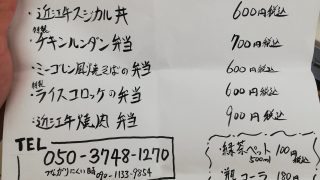 ・近江牛スジカル丼 600円税込
・特製チキンルンダン弁当 700円税込
・ミーゴレン風焼きそばの弁当 600円税込
・特製ライスコロッケの弁当 600円税込
・近江牛焼肉弁当 900円税込
TEL
050-3748-1270
つながりにくい時 090-1133-9354
・緑茶ペット 100円税込
500ml
・瓶コーラ 180円